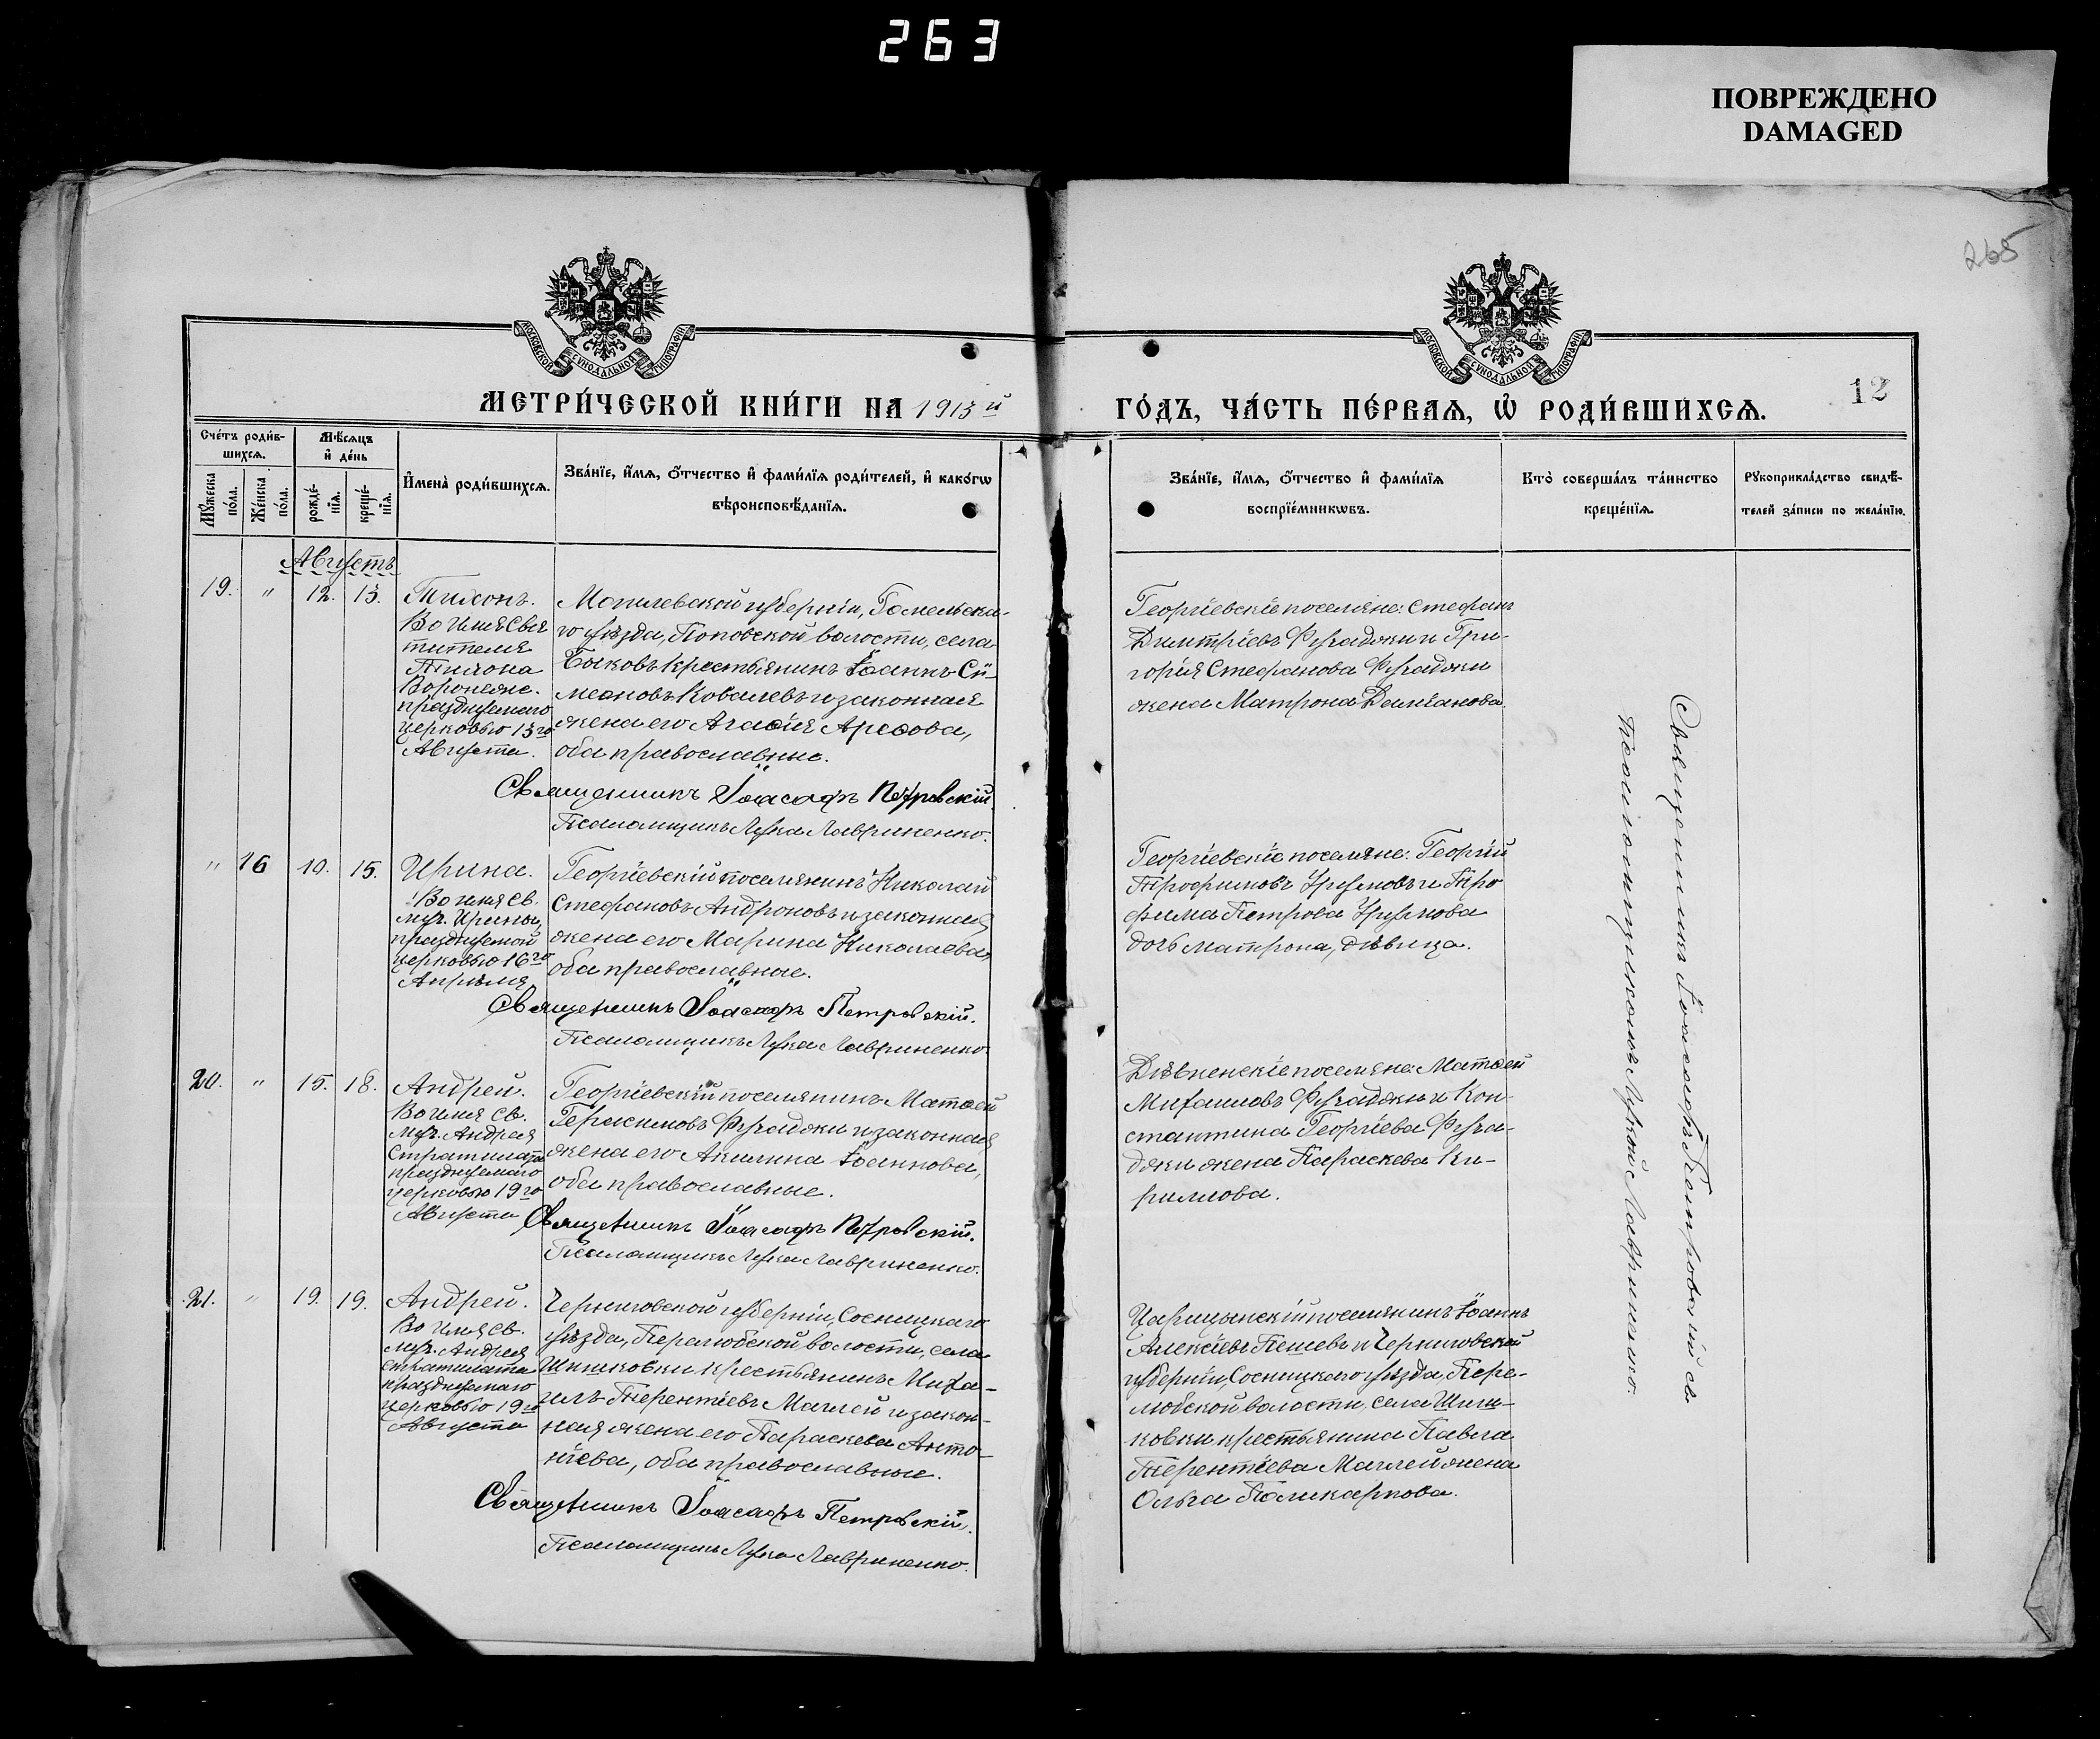 263
ПОВРЕЖДЕНО
DAMAGED
265
12
МОСКОВСКОЙ СѴНОДАЛЬНОЙ ТИПОГРАФІИ
МОСКОВСКОЙ СѴНОДАЛЬНОЙ ТИПОГРАФІИ
МЕТРИ́ЧЕСКОЙ КНИ́ГИ НА 1913й
ГО́ДЪ, ЧА́СТЬ ПЕ́РВАѦ, Ѡ҆ РОДИ́ВШИХСѦ.
Сче́тъ роди́в-
шихсѧ.
Мꙋ́жеска по́ла.
Же́нска по́ла.
Мѣ́сѧцъ
и҆ де́нь
рожде́-
нїѧ.
креще́-
нїѧ.
И҆мена̀ роди́вшихсѧ.
Зва́нїе, и҆́мѧ, ѻ҆́тчество и҆ фами́лїѧ роди́телей, и҆ како́гѡ
вѣроисповѣ́данїѧ.
Зва́нїе, и҆́мѧ, ѻ҆́тчество и҆ фами́лїѧ
воспрїе́мникѡвъ.
Кто̀ соверша́лъ та́инство
креще́нїѧ.
Рꙋкоприкла́дство свидѣ́-
телей за́писи по жела́нїю.
Августъ
19. " 12. 13.
Тихонъ.
Во имя Свя
тителя
Тихона
Воронеж.
празднуемаго
церковью 13го
Августа.
Могилевской губерніи, Гомельска-
го уѣзда, Поповской волости, села
крестьянинъ Іоаннъ Си-
меоновъ Ковалевъ и законная
жена его Агаѳія
оба православные.
Священникъ Іоасафъ Петровскій.
Псаломщикъ Лука Лавриненко.
Георгіевскіе поселяне: Стефанъ
Димитріевъ Фучаджи и Гри-
горія Стефанова Фучаджи
жена Матрона Даміанова
" 16 10. 15.
Ирина.
Во имя св.
муч. Ирины,
празднуемой
церковью 16го
Апрѣля
Георгіевскій поселянинъ Николай
Стефановъ Андроновъ и законная
жена его Марина Николаева,
оба православные.
Священникъ Іоасафъ Петровскій.
Псаломщикъ Лука Лавриненко.
Георгіевскіе поселяне: Георгій
Трофимовъ и Тро
фима Петрова
дочь Матрона, дѣвица.
20. " 15. 18.
Андрей.
Во имя св.
муч. Андрея
Стратилата
празднуемаго
церковью 19го
Августа
Георгіевскій поселянинъ Матѳей
Герасимовъ Фучаджи и законная
жена его Акилина Іоаннова,
оба православные.
Священникъ Іоасафъ Петровскій.
Псаломщикъ Лука Лавриненко.
Дѣвненскіе поселяне: Матѳей
Михаиловъ Фучаджи и Кон-
стантина Георгіева Фуча-
джи жена Параскева Ки-
риллова.
21. " 19. 19.
Андрей.
Во имя св.
муч. Андрея
стратилата
празднуемаго
церковью 19го
Августа
Черниговской губерніи, Сосницкаго
уѣзда, Перелюбской волости, села
Шишковки крестьянинъ Миха-
илъ Терентіевъ Маглей и закон-
ная жена его Параскева Анто-
ніева, оба православные.
Священникъ Іоасафъ Петровскій.
Псаломщикъ Лука Лавриненко.
Царицынскій поселянинъ Іоаннъ
Алексіевъ Пешевъ и Черниговской
губерніи, Сосницкаго уѣзда, Пере-
любской волости, села Шиш-
ковки крестьянина Павла
Терентіева Маглей жена
Ольга Поликарпова.
Священникъ Іоасафъ Петровскій съ
Псаломщикомъ Лукой Лавриненко.